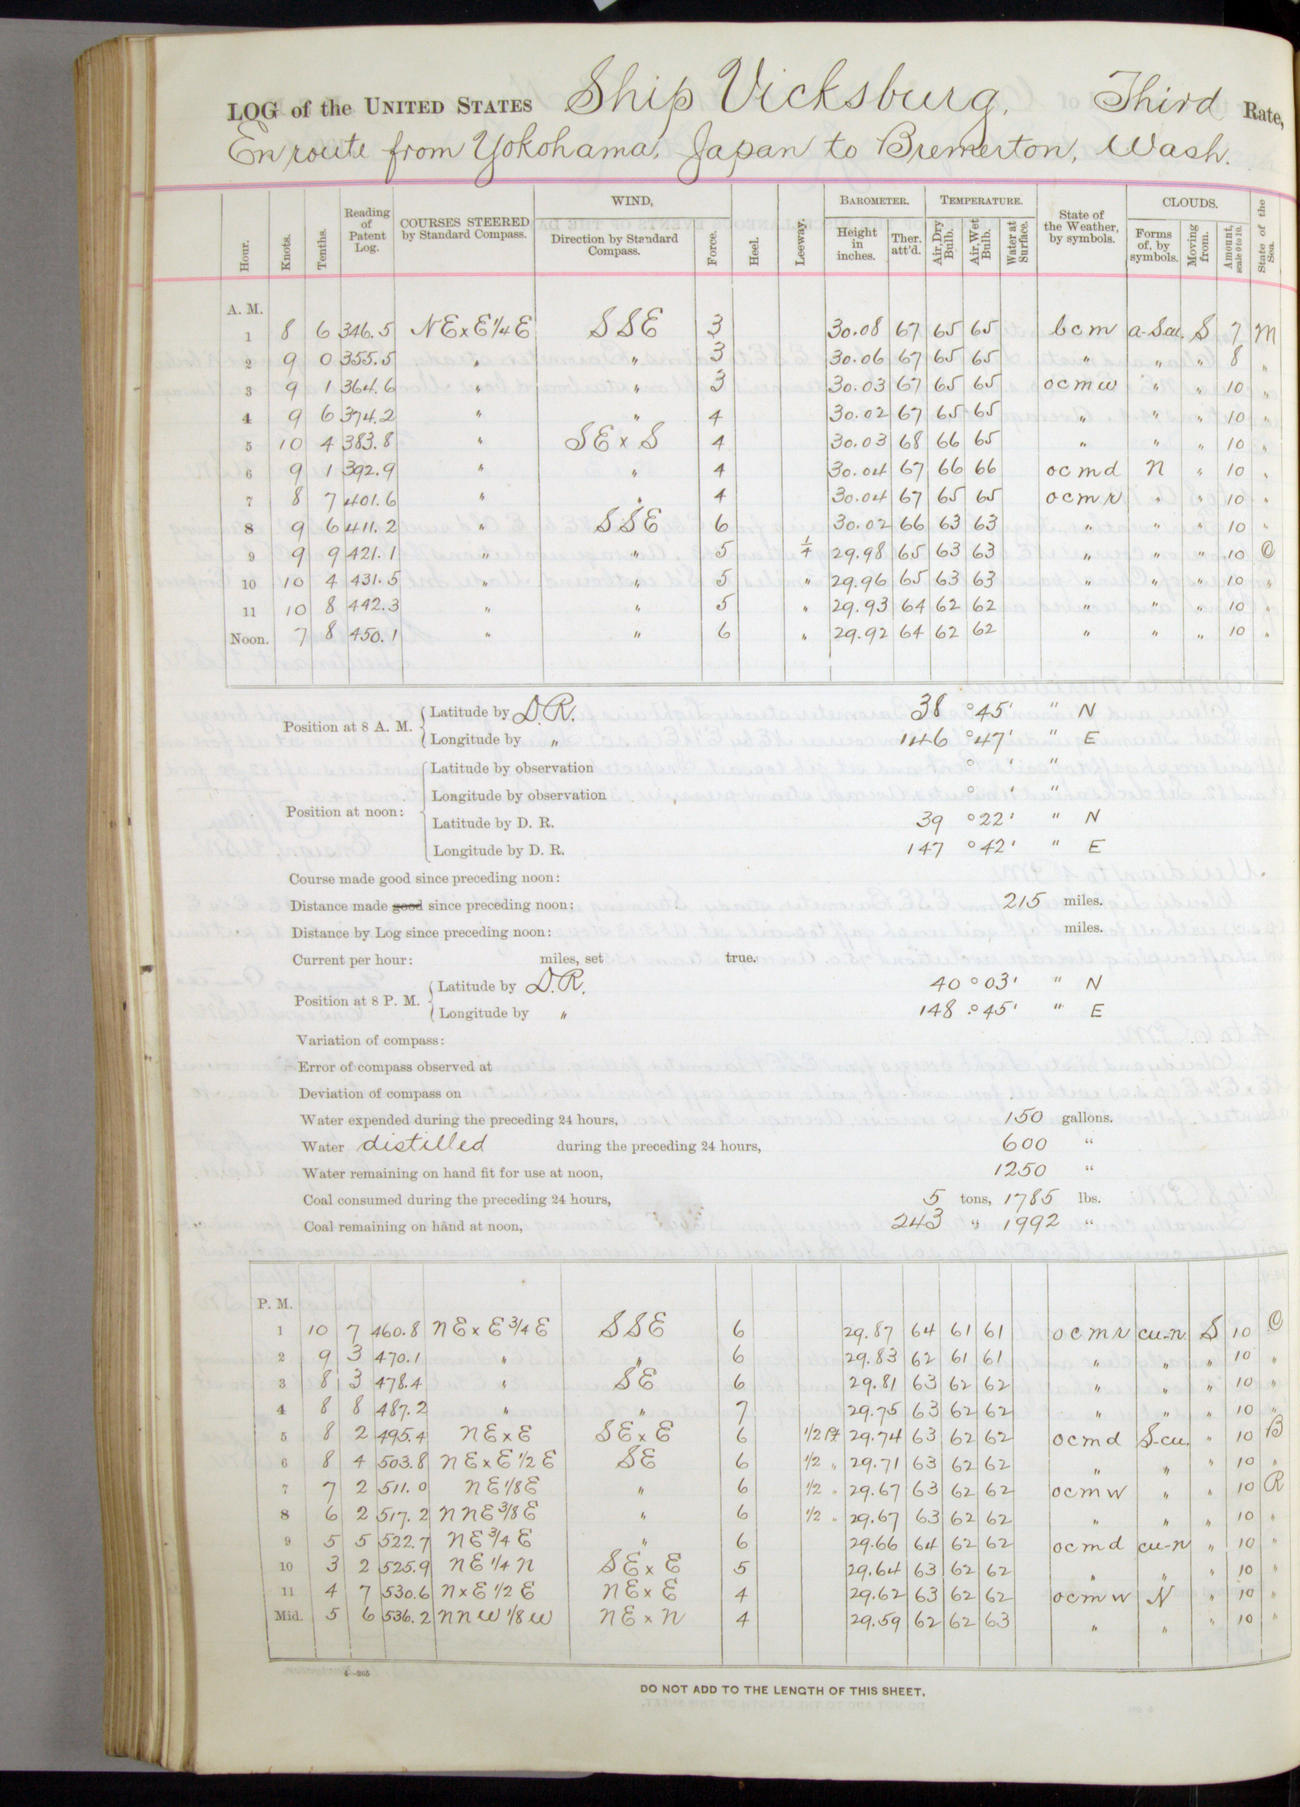 LOG of the UNITED STATES Ship Vicksburg, Third Rate,
En route from Yokohama, Japan to Bremerton, Wash.
Hour. Knots. Tenths. Reading of Patent Log. COURSES STEERED by Standard Compass. WIND, Direction by Standard Compass. Force. Heel. Leeway. BAROMETER. Height in inches. Ther. att'd. TEMPERATURE. Air, Dry Bulb. Air, Wet Bulb. Water at Surface. State of the Weather, by symbols. CLOUDS. Forms of, by symbols. Moving from. Amount, scale 0 to 10. State of the Sea.
A. M.
1 8 6 346.5 NE x E 1/4 E SSE 3 30.08 67 65 65 b c m a-S.cu. S 7 M
2 9 0 355.5 " " 3 30.06 67 65 65 " " " 8 "
3 9 1 364.6 " " 3 30.03 67 65 65 o c m w " " 10 "
4 9 6 374.2 " " 4 30.02 67 65 65 " " " 10 "
5 10 4 383.8 " SE x S 4 30.03 68 66 65 " " " 10 "
6 9 1 392.9 " " 4 30.04 67 66 66 o c m d n " 10 "
7 8 7 401.6 " " 4 30.04 67 65 65 o c m r " " 10 "
8 9 6 411.2 " SSE 6 30.02 66 63 63 " " " 10 "
9 9 9 421.1 " " 5 1/4 29.98 65 63 63 " " " 10 O
10 10 4 431.5 " " 5 " 29.96 65 63 63 " " " 10 "
11 10 8 442.3 " " 5 " 29.93 64 62 62 " " " 10 "
Noon. 7 8 450.1 " " 6 " 29.92 64 62 62 " " " 10 "
Position at 8 A. M. Latitude by D.R. 38 ° 45 ' " N
Longitude by " 146 ° 47 ' " E
Position at noon: Latitude by observation ° ' "
Longitude by observation ° ' "
Latitude by D. R. 39 ° 22 ' " N
Longitude by D. R. 147 ° 42 ' " E
Course made good since preceding noon:
Distance made good since preceding noon: 215 miles.
Distance by Log since preceding noon: miles.
Current per hour: miles, set true.
Position at 8 P. M. Latitude by D.R. 40 ° 03 ' " N
Longitude by " 148 ° 45 ' " E
Variation of compass:
Error of compass observed at
Deviation of compass on
Water expended during the preceding 24 hours, 150 gallons.
Water distilled during the preceding 24 hours, 600 "
Water remaining on hand fit for use at noon, 1250 "
Coal consumed during the preceding 24 hours, 5 tons, 1785 lbs.
Coal remaining on hand at noon, 243 " 1992 "
P. M.
1 10 7 460.8 NE x E 3/4 E SSE 6 29.87 64 61 61 o c m r cu-n S 10 O
2 9 3 470.1 " " 6 29.83 62 61 61 " " " 10 "
3 8 3 478.4 " SE 6 29.81 63 62 62 " " " 10 "
4 8 8 487.2 " " 7 29.75 63 62 62 " " " 10 "
5 8 2 495.4 NE x E SE x E 6 1/2 Pt 29.74 63 62 62 o c m d S-cu. " 10 B
6 8 4 503.8 NE x E 1/2 E SE 6 1/2 " 29.71 63 62 62 " " " 10 "
7 7 2 511.0 NE 1/8 E " 6 1/2 " 29.67 63 62 62 o c m w " " 10 R
8 6 2 517.2 NNE 3/8 E " 6 1/2 " 29.67 63 62 62 " " " 10 "
9 5 5 522.7 NE 3/4 E " 6 29.66 64 62 62 o c m d cu-n " 10 "
10 3 2 525.9 NE 1/4 N SE x E 5 29.64 63 62 62 " " " 10 "
11 4 7 530.6 N x E 1/2 E NE x E 4 29.62 63 62 62 o c m w N " 10 "
Mid. 5 6 536.2 NNW 1/8 W NE x N 4 29.59 62 62 63 " " " 10 "
DO NOT ADD TO THE LENGTH OF THIS SHEET.